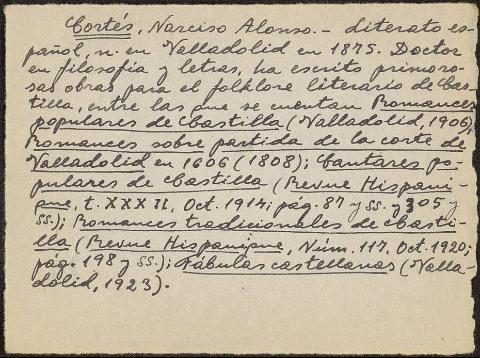 Cortés, Narciso Alonso.- Literato es-
pañol, n. en Valladolid en 1875. Doctor
en filosofía y letras, ha escrito primoro-
sas obras para el folklore literario de Cas-
tilla, entre las que se cuentan Romances
populares de Castilla (Valladolid, 1906),
Romances sobre partida de la corte de
Valladolid en 1606 (1808); Cantares po-
pulares de Castilla (Revue Hispani-
que, t. XXXII, Oct. 1914; pág. 87 y ss. y 305 y
ss.); Romances tradicionales de Casti-
lla (Revue Hispanique, Núm. 117, Oct. 1920;
pág. 198 y ss.); Fábulas castellanas (Valla-
dolid, 1923).